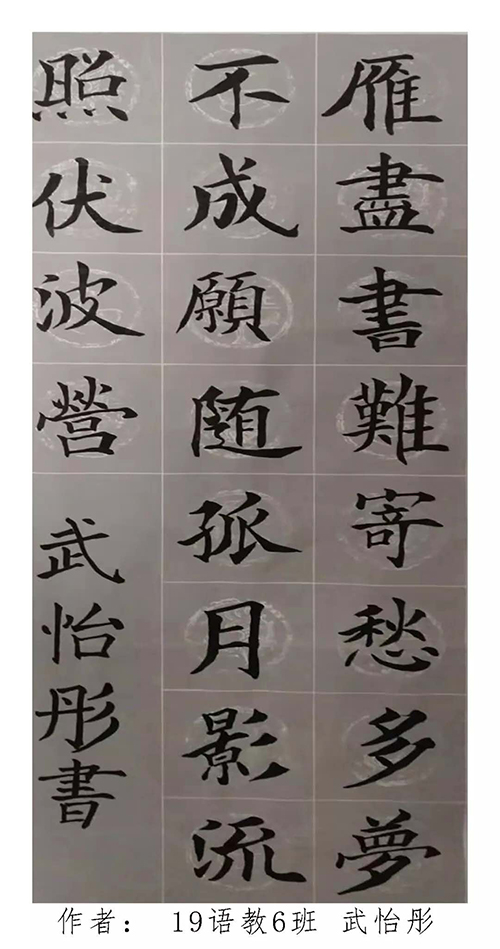 雁盡書難寄愁多夢
不成願随孤月影流
照伏波營
武怡彤書
作者： 19语教6班 武怡彤